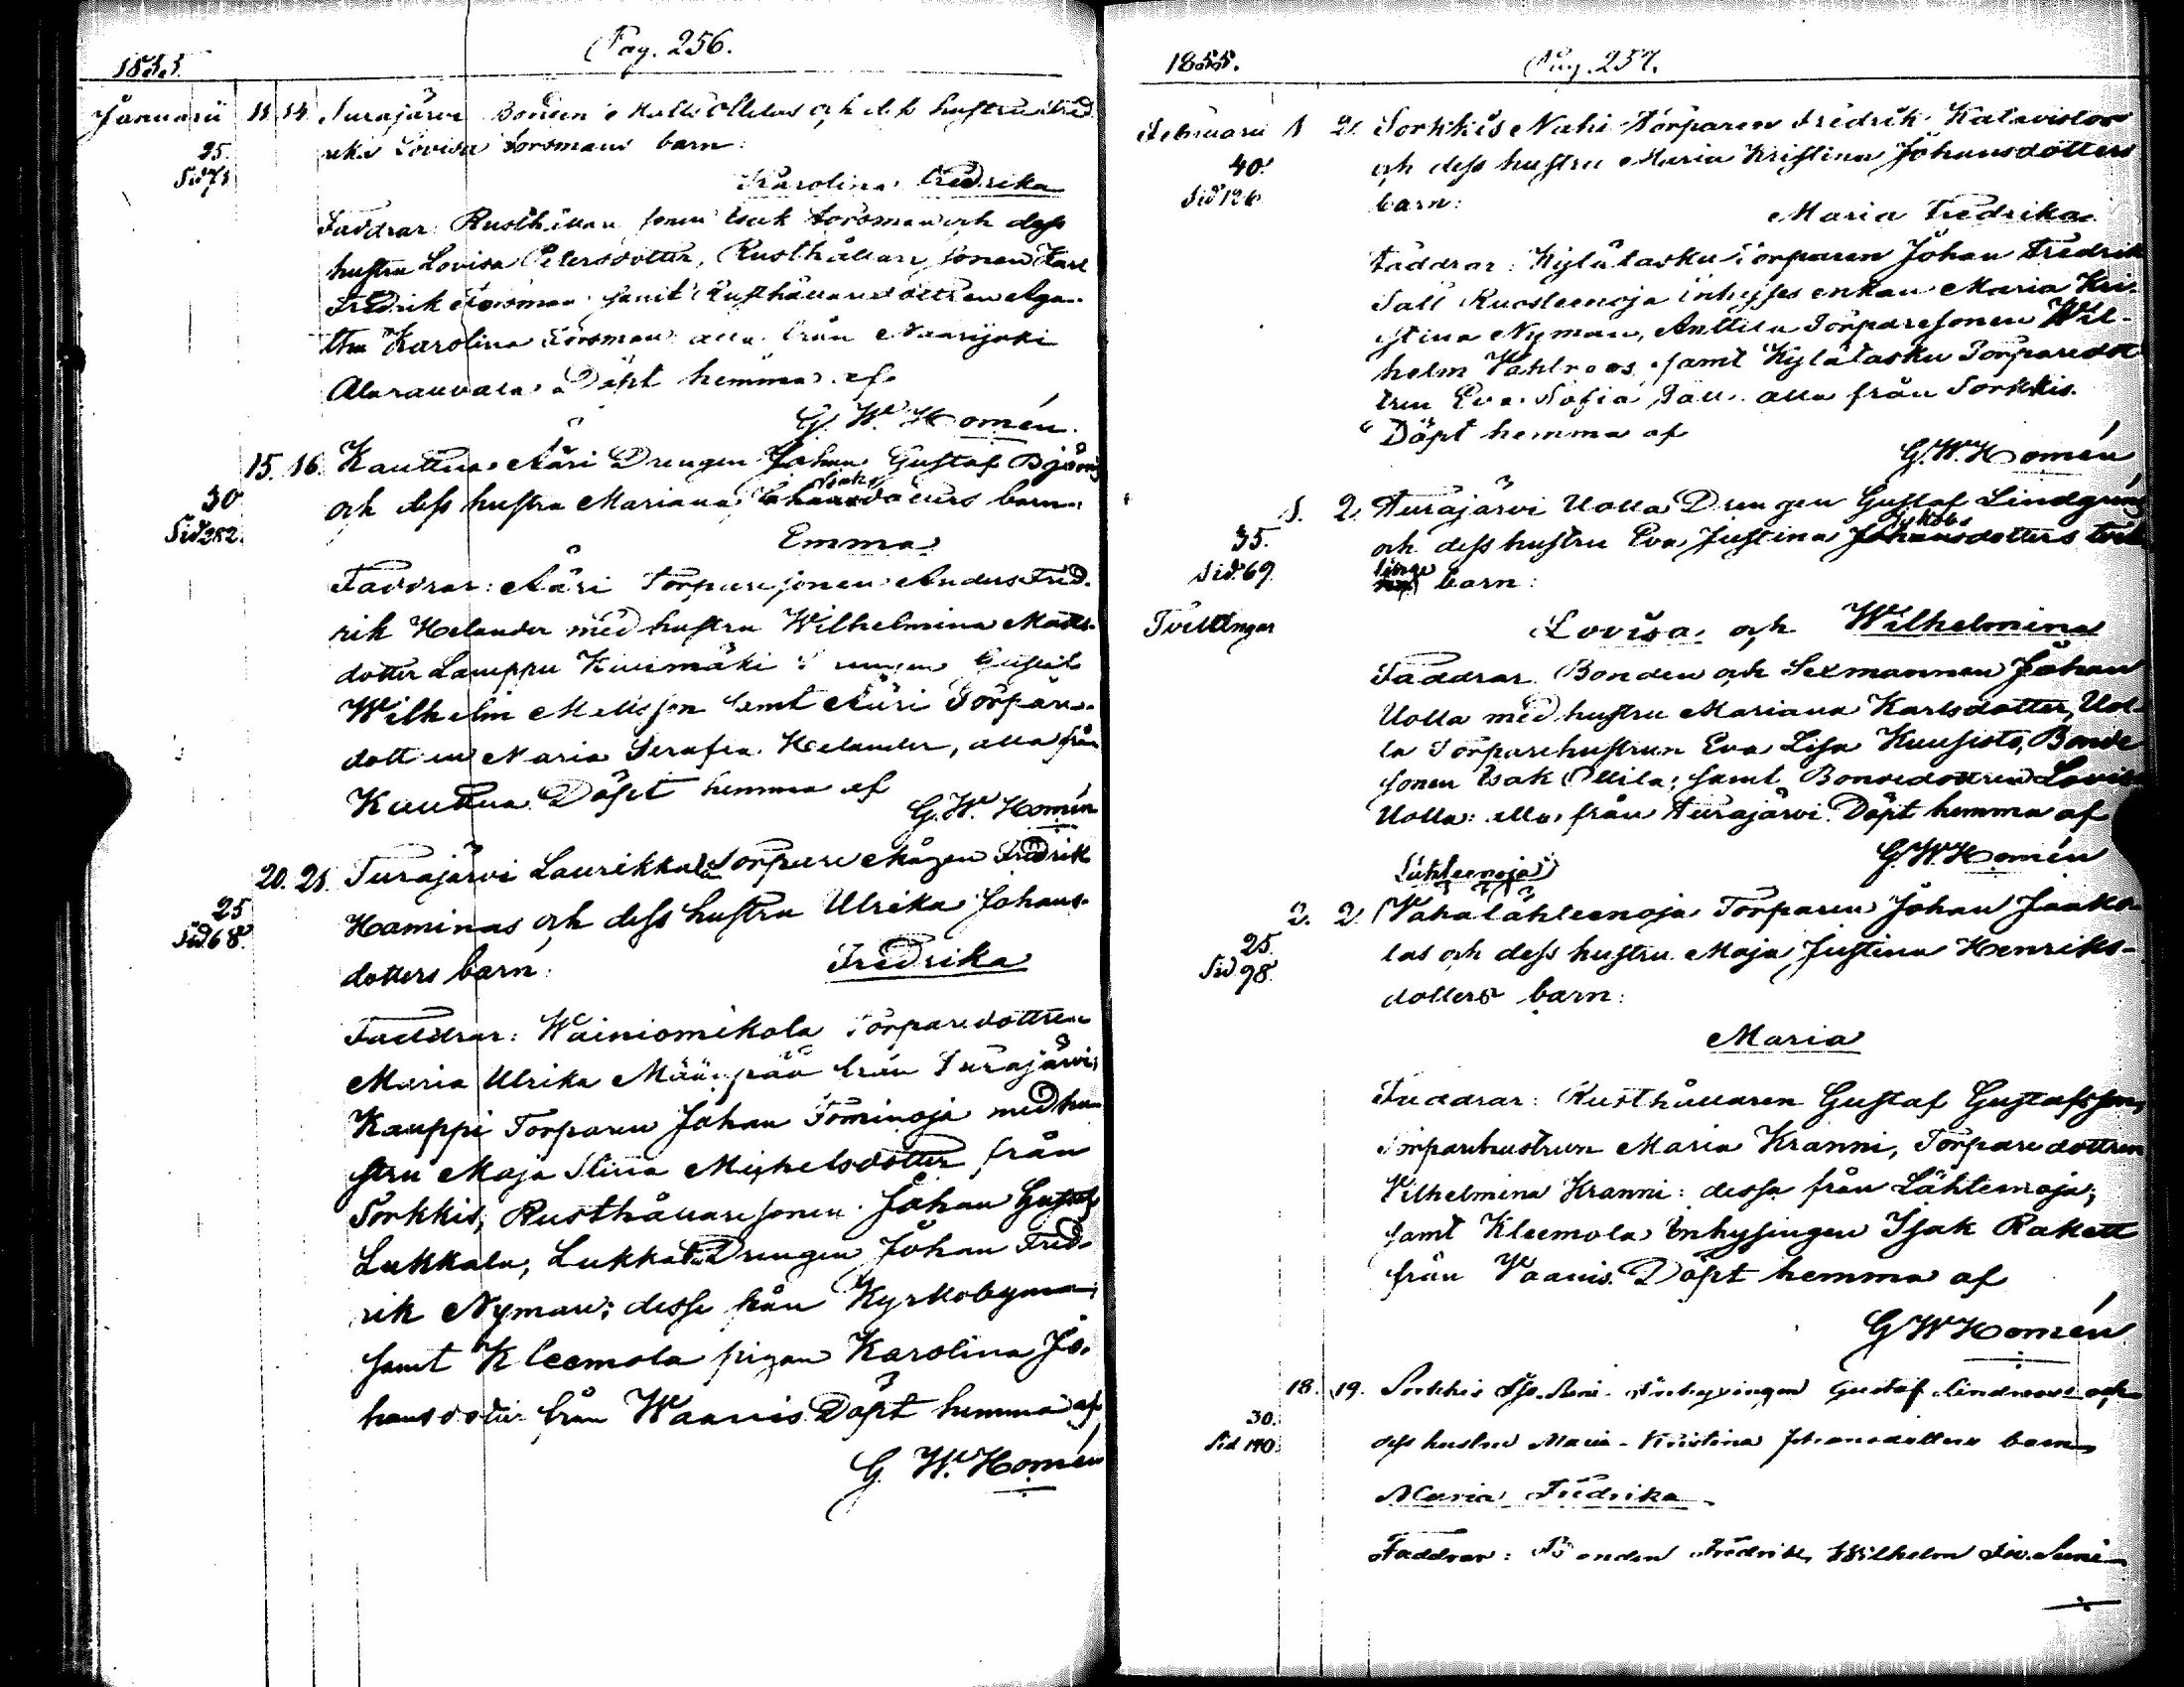 Pag. 256.
1855.
Januarii 11 14 Turajärvi Bonden Matts Ollilas och dess hustru Fred
25. rika Lovisa Forsmans barn:
Sid 71
Karolina Fredrika
Faddrar: Rusthållare sonen Isak Forsman och dess
hustru Lovisa Petersdotter, Rusthållare sonen Karl
Fredrik Forsman samt Rusthållaredottren Aga-
tha Karolina Forsman alla från Naarijoki
Alarauvala Döpt hemma af
G. W. Homén.
15. 16. Kauttua Aäri Drengen Johan Gustaf Björns
Isaks
30 och dess hustru Mariana Johansdotters barn:
Sid 252.
Emma
Faddrar: Aäri Torparesonen Anders Fred-
rik Helander med hustru Wilhelmina Matts-
dotter Lauppu Kuumäki Drengen Gustaf
Wilhelm Mattsson samt Aäri Torpare-
dottren Maria Serafia Helander, alla från
Kauttua Döpt hemma af
G. W. Homén
20. 21. Turajärvi Laurikkala Torpare Mågen Fredrik
25 Haminas och dess hustru Ulrika Johans-
Sid 68. dotters barn: Fredrika
Faddrar: Wäiniomikola Torparedottren
Maria Ulrika Määnpää från Turajärvi;
Kauppi Torparen Johan Tominoja med hu-
stru Maja Stina Michelsdotter från
Sorkkis, Rusthållaresonen Johan Gustaf
Lukkala, Lukkala Drengen Johan Fred-
rik Nyman; desse från Kyrkobyn
samt Kleemola pigan Karolina Jo-
hansdotter från Waanis Döpt hemma af
G. W. Homén
1855. Pag. 257.
Februarii 1 2. Sorkkis Nahi Torparen Fredrik Katavistos
40. och dess hustru Maria Kristina Johansdotters
Sid 126 barn:
Maria Fredrika
Faddrar: Kylätasku Torparen Johan Fredrik
Täll Ruosteenoja inhyses enkan Maria Kri-
stina Nyman, Anttila Torparesonen Wil-
helm Wahlroos samt Kylätasku Torparedot
tren Eva Sofia Täll alla från Sorkkis.
Döpt hemma af
G. W. Homén
1. 2. Turajärvi Uolla Drengen Gustaf Lindgrens
Jakobs
35. och dess hustru Eva Justina Johansdotters tvil
Sid 69. linge barn:
Tvillingar
Lovisa och Wilhelmina
Faddrar Bonden och Sexmannen Johan
Uolla med hustru Mariana Karlsdotter, Uol-
la Torparehustrun Eva Lisa Kuusisto, Bonde
sonen Isak Ollila; samt Bondedottren Lovisa
Uolla: alla från Turajärvi. Döpt hemma af
G. W. Homén
Lähteenoja
2. 2. (Vähälähteenoja Torparen Johan Jaakko-
25. las och dess hustru Maja Justina Henriks-
Sid 98. dotters barn:
Maria
Faddrar: Rusthållaren Gustaf Gustafsson,
Torparehustrun Maria Kranni, Torparedottren
Vilhelmina Kranni: dessa från Lähteenoja;
samt Kleemola Inhysingen Isak Rakett
från Vaanis. Döpt hemma af
G W Homén
18. 19. Sorkkis Iso-Suni Inhysingen Gustaf Lindroos och
30. dess hustru Maria Kristina Johansdotters barn
Sid 140.
Maria Fredrika
Faddrar: Bonden Fredrik Wilhelm Iso-Suni